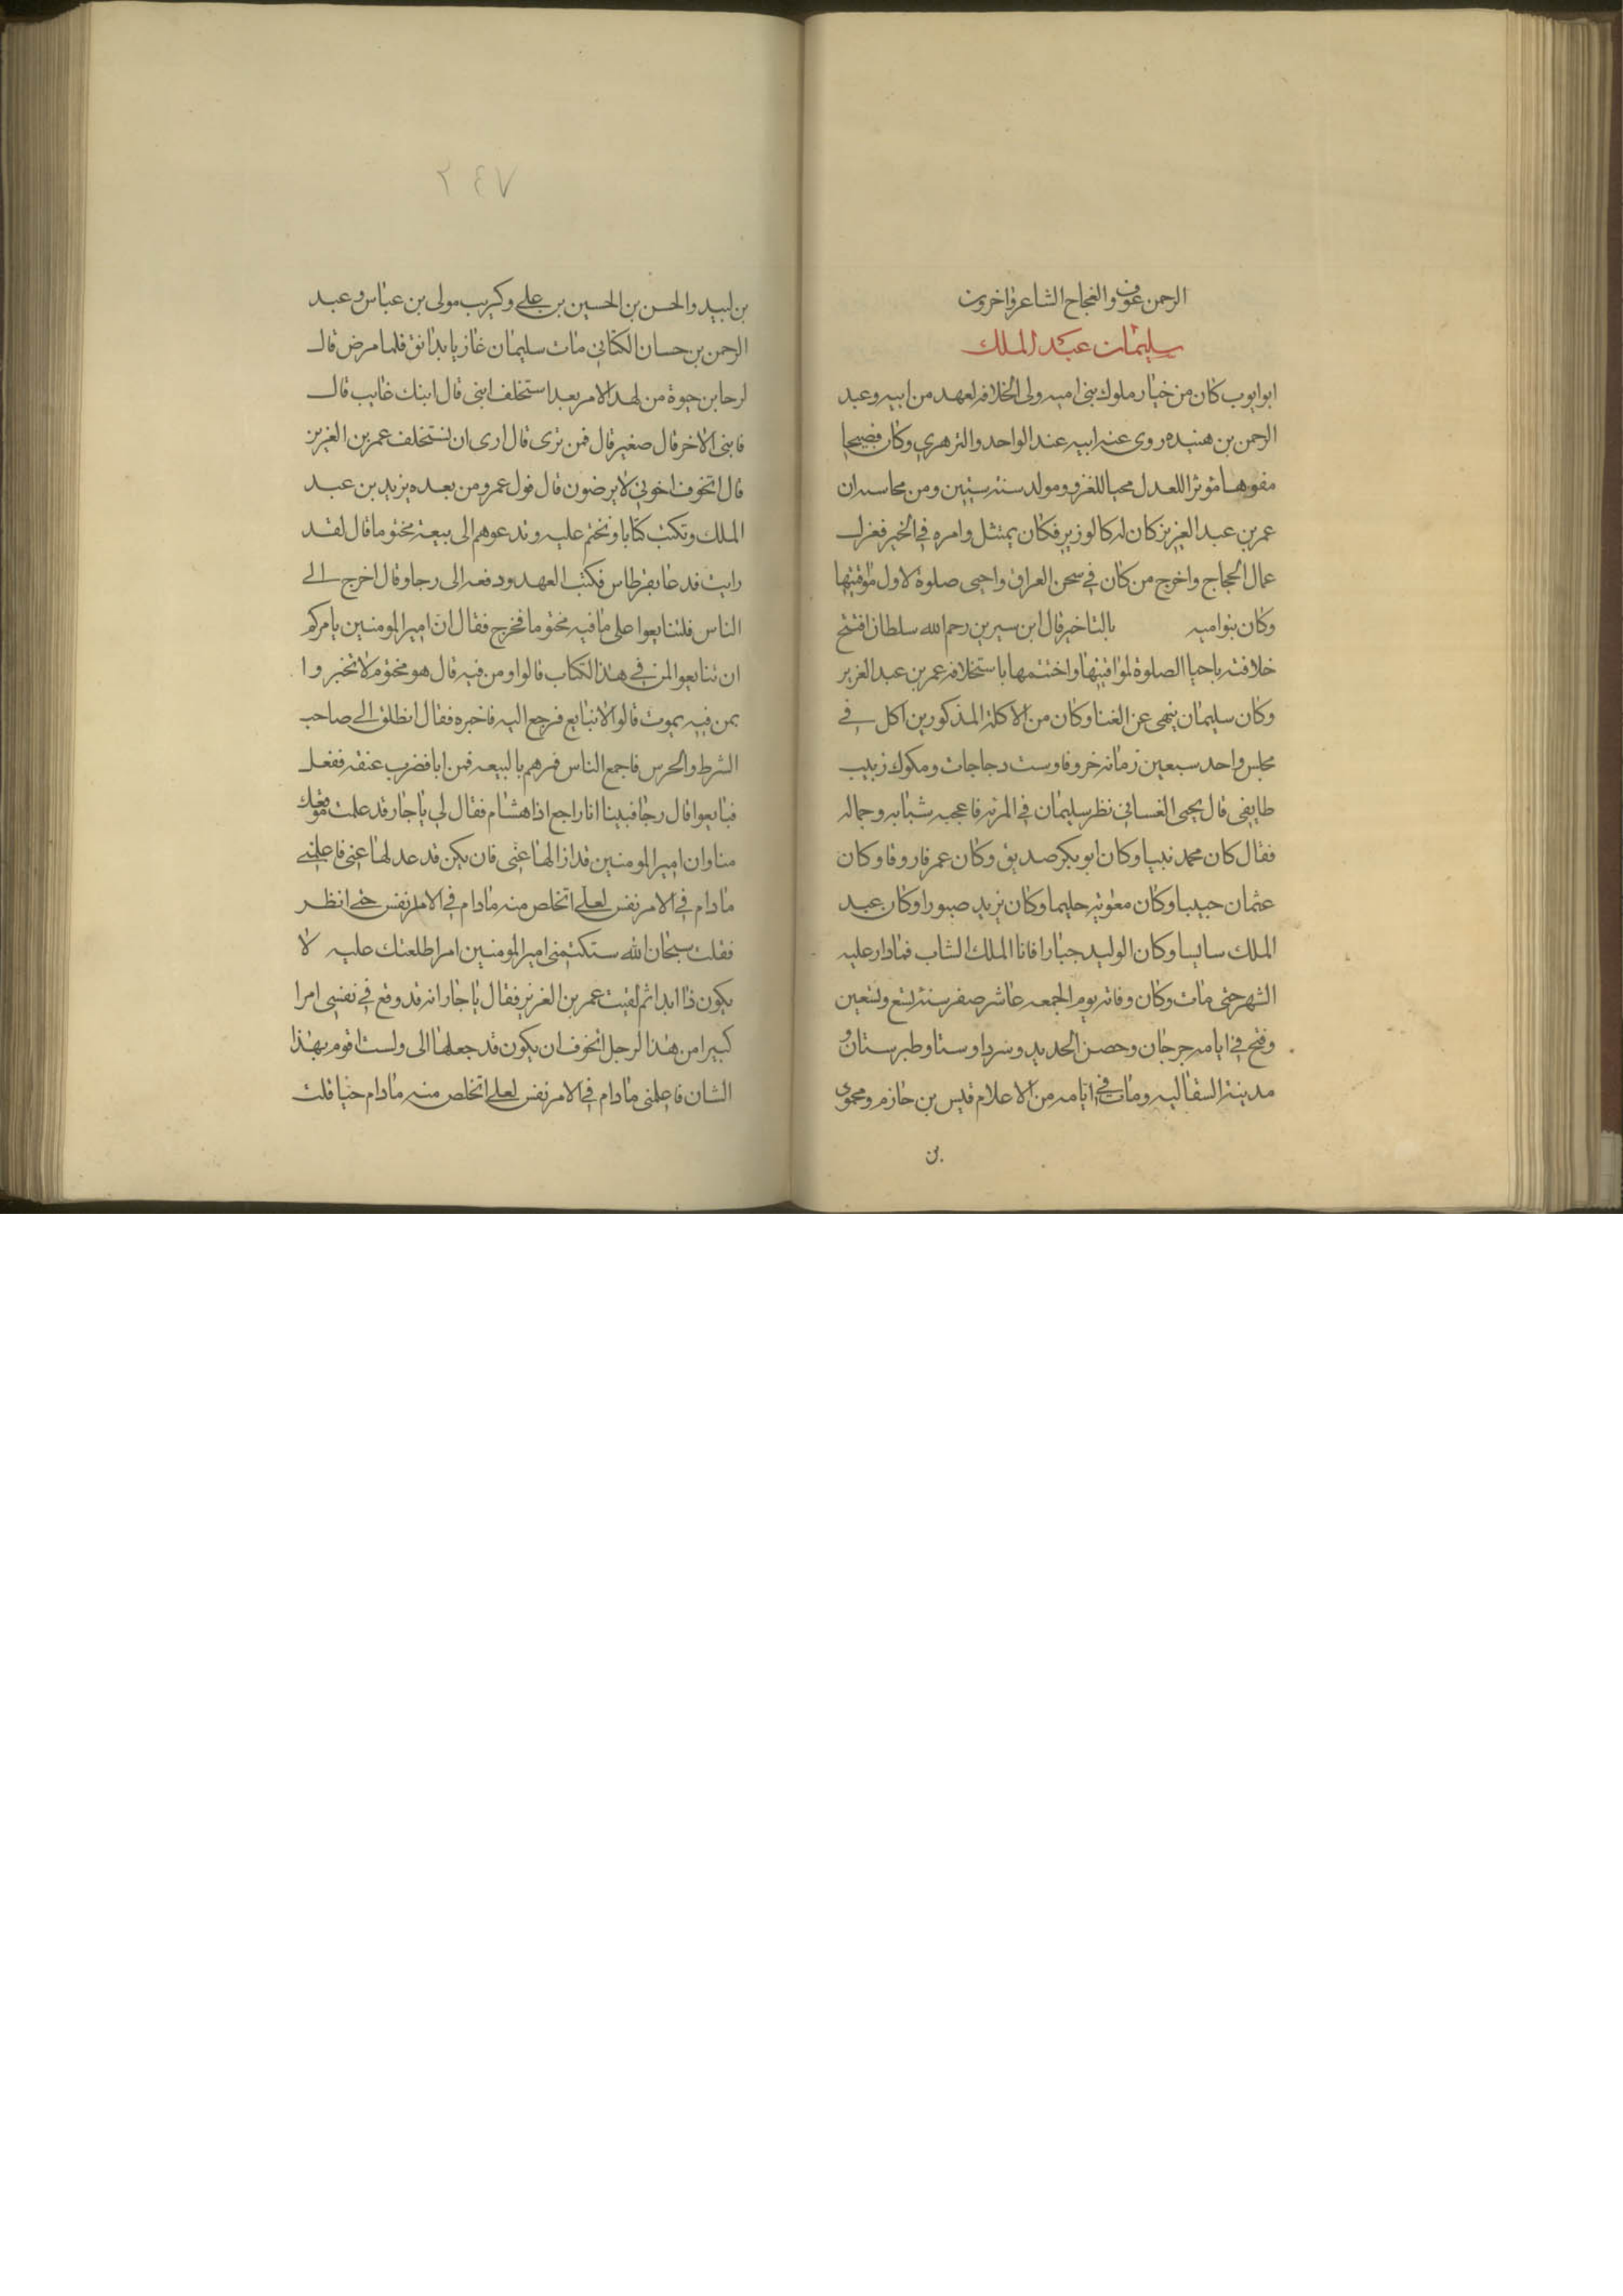 الرحمن عوف والعجاج الشاعر واخرون
سليمان عبد الملك
ابو ايوب كان من خيار ملوك بنى اميه ولى الخلافه لعهد من ابيه وعبد
الرحمن بن هنيده روى عنه ابيه عند الواحد والزهري وكان فصيحا
مفوها موثرا للعدل محبا للغزو ومولد سنة ستين ومن محاسنه ان
عمر بن عبد العزيز كان له كالوزير فكان يمتثل وامره في الخير فعزل
عمال الحجاج واخرج من كان في سجن العراق واحيى صلوة لاول مواقيتها
وكان بنواميه بالتاخير قال ابن سيرين رحم الله سلطان افتتح
خلافته باحيا الصلوة لمواقيتها واختتمها باستخلافه عمر بن عبد العزيز
وكان سليمان ينهى عن الغنا وكان من الاكلة المذكورين اكل في
مجلس واحد سبعين رمانه خروفا وست دجاجات ومكوك زبيب
طايفى قال يحيى الغساني نظر سليمان في المرته فاعجبه شبابه وجماله
فقال كان محمد نبيا وكان ابو بكر صديق وكان عمر فاروقا وكان
عثمان حبيبا وكان معوية حليما وكان يزيد صبورا وكان عبد
الملك سايسا وكان الوليد جبارا فانا الملك الشاب فمادار عليه
الشهر حتى مات وكان وفاته يوم الجمعه عاشر صفر سنة تسع وتسعين
وفتح في ايامه جرجان وحصن الحديد وسردا وستا وطبرستان و
مدينة السقاليه ومات في ايامه من الاعلام قيس بن حازم ومحمود
بن
٢٤٧
بن لبيد والحسن بن الحسين بن علي وكريب مولى بن عباس وعبد
الرحمن بن حسان الكتاني مات سليمان غازيا بدانق فلما مرض قال
لرحا بن حيوة من لهدا الامر بعدا ستخلف ابنى قال ابنك غايب قال
فابنى الاخر قال صغير قال فمن ترى قال ارى ان تستخلف عمر بن العزيز
قال اتخوف اخوتي لايرضون قال فول عمر ومن بعده يزيد بن عبد
الملك وتكتب كتابا وتختم عليه وتدعوهم الى بيعة مختوما قال لقد
رايت فدعا بقرطاس فكتب العهد ودفعه الى رجا وقال اخرج الى
الناس فلتنابعوا على ما فيه مختوما فخرج فقال ان امير المومنين يامركم
ان تنابعوا لمن في هذا الكتاب قالوا ومن فيه قال هو مختوم لا تخبروا
بمن فيه يموت قالوا لا نبايع فرجع اليه فاخبره فقال انطلق الى صاحب
الشرط والحرس فاجمع الناس فمرهم بالبيعه فمن ابا فضرب عنقه ففعل
فبايعوا قال رجا فبينا انا راجع اذا هشام فقال لي يا جار قد علمت موقعك
منا وان امير المومنين قد ازالها عنى فان يكن قد عدلها عنى فاعلمني
مادام في الامر نفس لعلي اتخلص منه مادام في الامر نفس حتى انظر
فقلت سبحان الله ستكتمنى امير المومنين امرا طلعتك عليه لا
يكون ذا ابدا ثم لقيت عمر بن العزيز فقال يا جار انه قد وقع في نفسي امرا
كبيرا من هذا لرجل اتخوف ان يكون قد جعلها الى ولست اقوم بهذا
الشان فاعلمنى مادام في الامر نفس لعلي اتخلص منه مادام حيا قلت